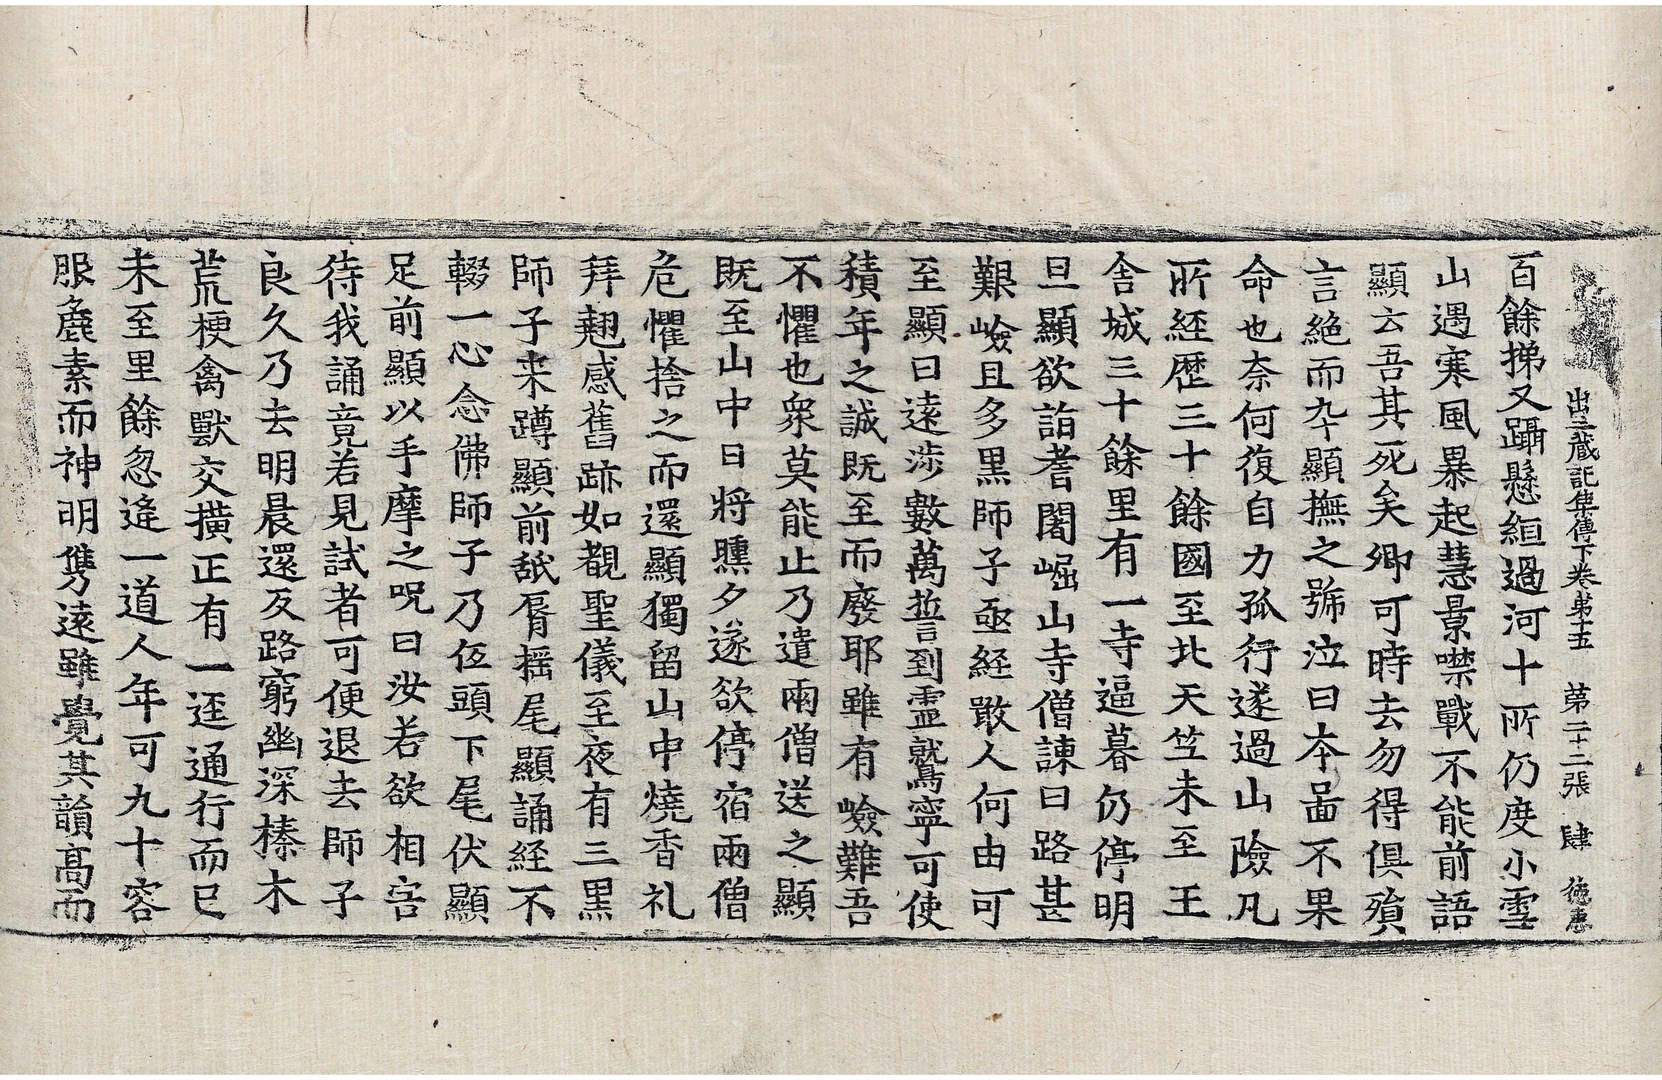 出三藏記集傳下卷第十五　第二十二張　肆
百餘梯又躡懸絙過河十所仍度小雪
山遇寒風暴起慧景噤戰不能前語
顯云吾其死矣卿可時去勿得俱殞
言絶而卒顯撫之號泣曰夲啚不果
命也奈何復自力孤行遂過山險凡
所経歷三十餘國至北天竺未至王
舍城三十餘里有一寺逼暮仍停明
旦顯欲詣耆闍崛山寺僧諫曰路甚
艱嶮且多黒師子亟経噉人何由可
至顯曰遠涉數萬誓到靈鷲寧可使
積年之誠既至而廢耶雖有嶮難吾
不懼也衆莫能止乃遣兩僧送之顯
既至山中日將曛夕遂欲停宿兩僧
危懼捨之而還顯獨留山中燒香礼
拜翹感舊跡如覩聖儀至夜有三黒
師子来蹲顯前舐脣揺尾顯誦経不
輟一心念佛師子乃伍頭下尾伏顯
足前顯以手摩之呪曰汝若欲相害
待我誦竟若見試者可便退去師子
良久乃去明晨還反路窮幽深榛木
荒梗禽獸交橫正有一迳通行而已
未至里餘忽逢一道人年可九十容
服麁素而神明雋遠雖覺其韻高而